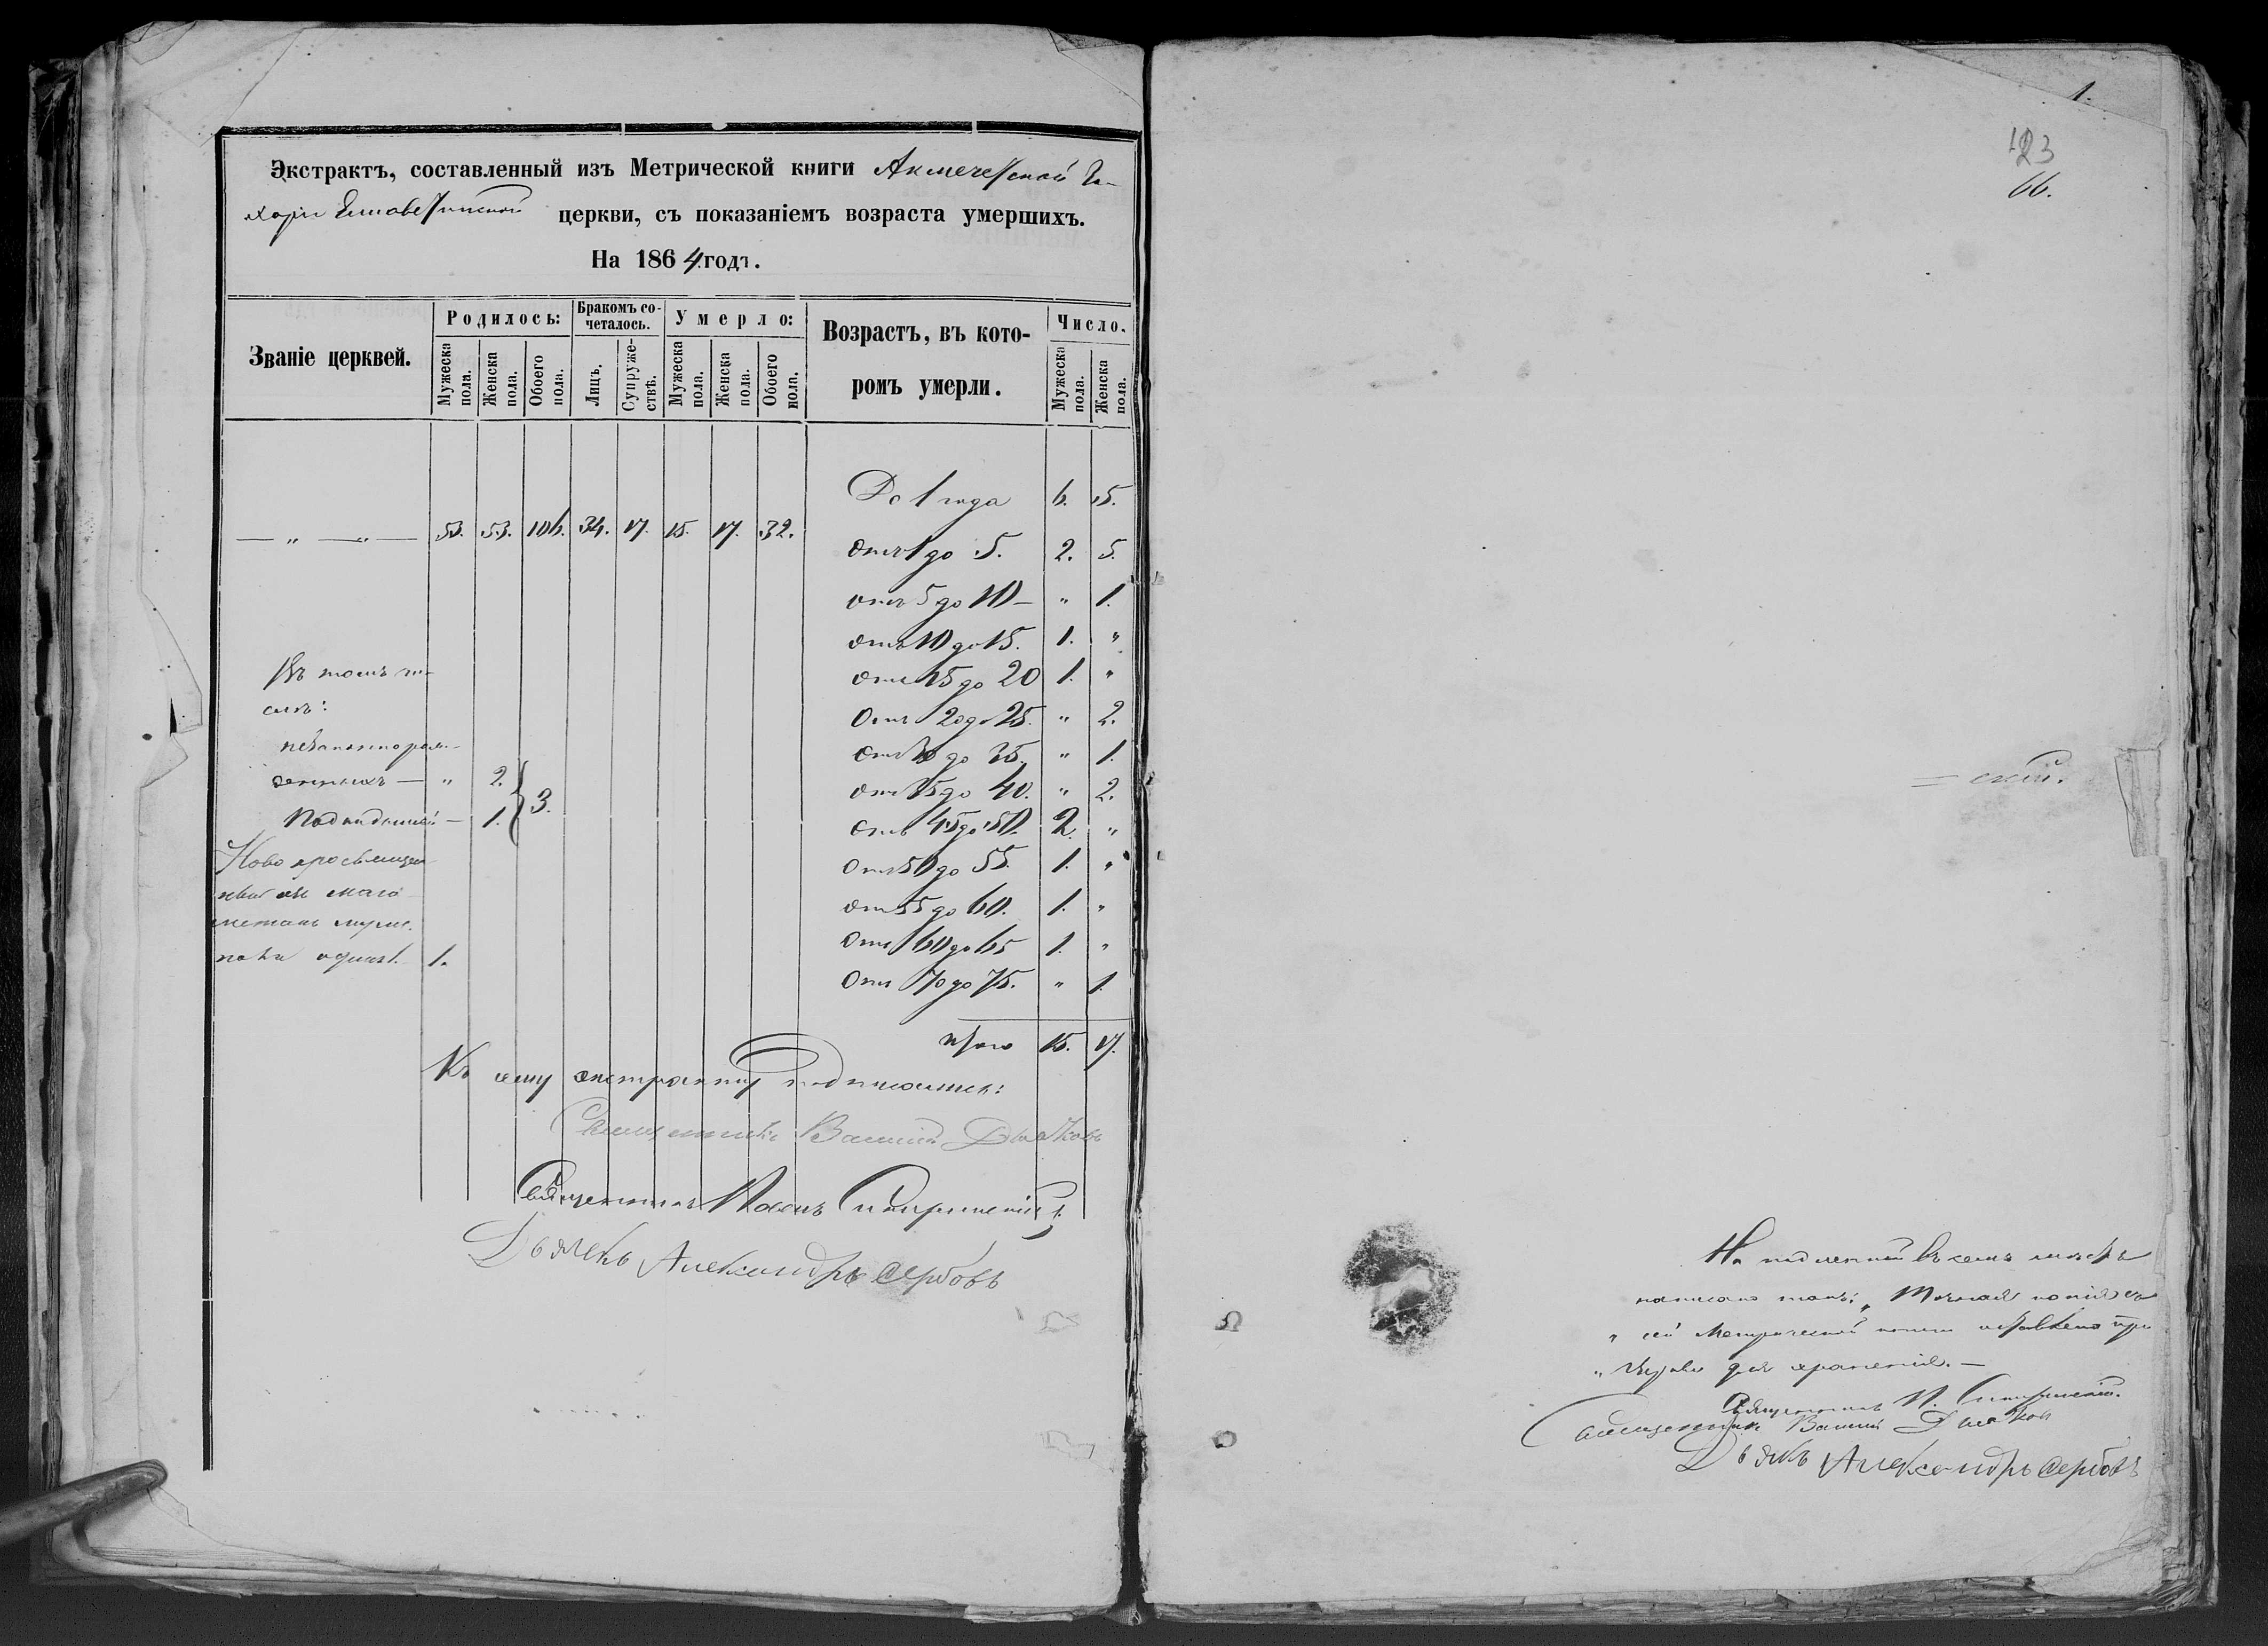 Экстрактъ, составленный изъ Метрической книги Акмечетской За-
харіи Елисаветинской церкви, съ показаніемъ возраста умершихъ.
На 1864 годъ.
Званіе церквей.
Родилось:
Бракомъ со-
четалось.
Умерло:
Возрастъ, въ кото-
ромъ умерли.
Число.
Мужеска пола.
Женска пола.
Обоего пола.
Лицъ.
Супруже-
ствъ.
Мужеска пола.
Женска пола.
Обоего пола.
Мужеска пола.
Женска пола.
— „ — „ — 53. 53. 106. 34. 17. 15. 17. 32.
До 1 года 6. 5.
отъ 1 до 5. 2. 5.
отъ 5 до 10 — „ 1.
отъ 10 до 15. 1. „
отъ 15 до 20 1. „
отъ 20 до 25. „ 2.
отъ 30 до 35. „ 1.
отъ 35 до 40. „ 2.
отъ 45 до 50. 2. „
отъ 50 до 55. 1. „
отъ 55 до 60. 1. „
отъ 60 до 65 1. „
отъ 70 до 75. „ 1.
итого 15. 17.
Въ томъ чи-
слѣ:
незаконнорож-
денныхъ — „ 2.
3.
Подкидышей — 1.
Новопросвещен-
ныхъ изъ маго-
метанъ мужс.
пола одинъ. 1.
Къ сему экстракту подписались:
Священникъ Василій Дьяковъ
Священникъ
Дьячекъ Александръ Сербовъ
1.
123
66.
= скій.
На подлинной въ семъ мѣстѣ
написано такъ: „Точная копія съ
„ сей Метрической книги оставлена при
„ Церкви для храненія. —
Священникъ
Священникъ Василій Дьяков
Дьячкъ Александръ Сербовъ